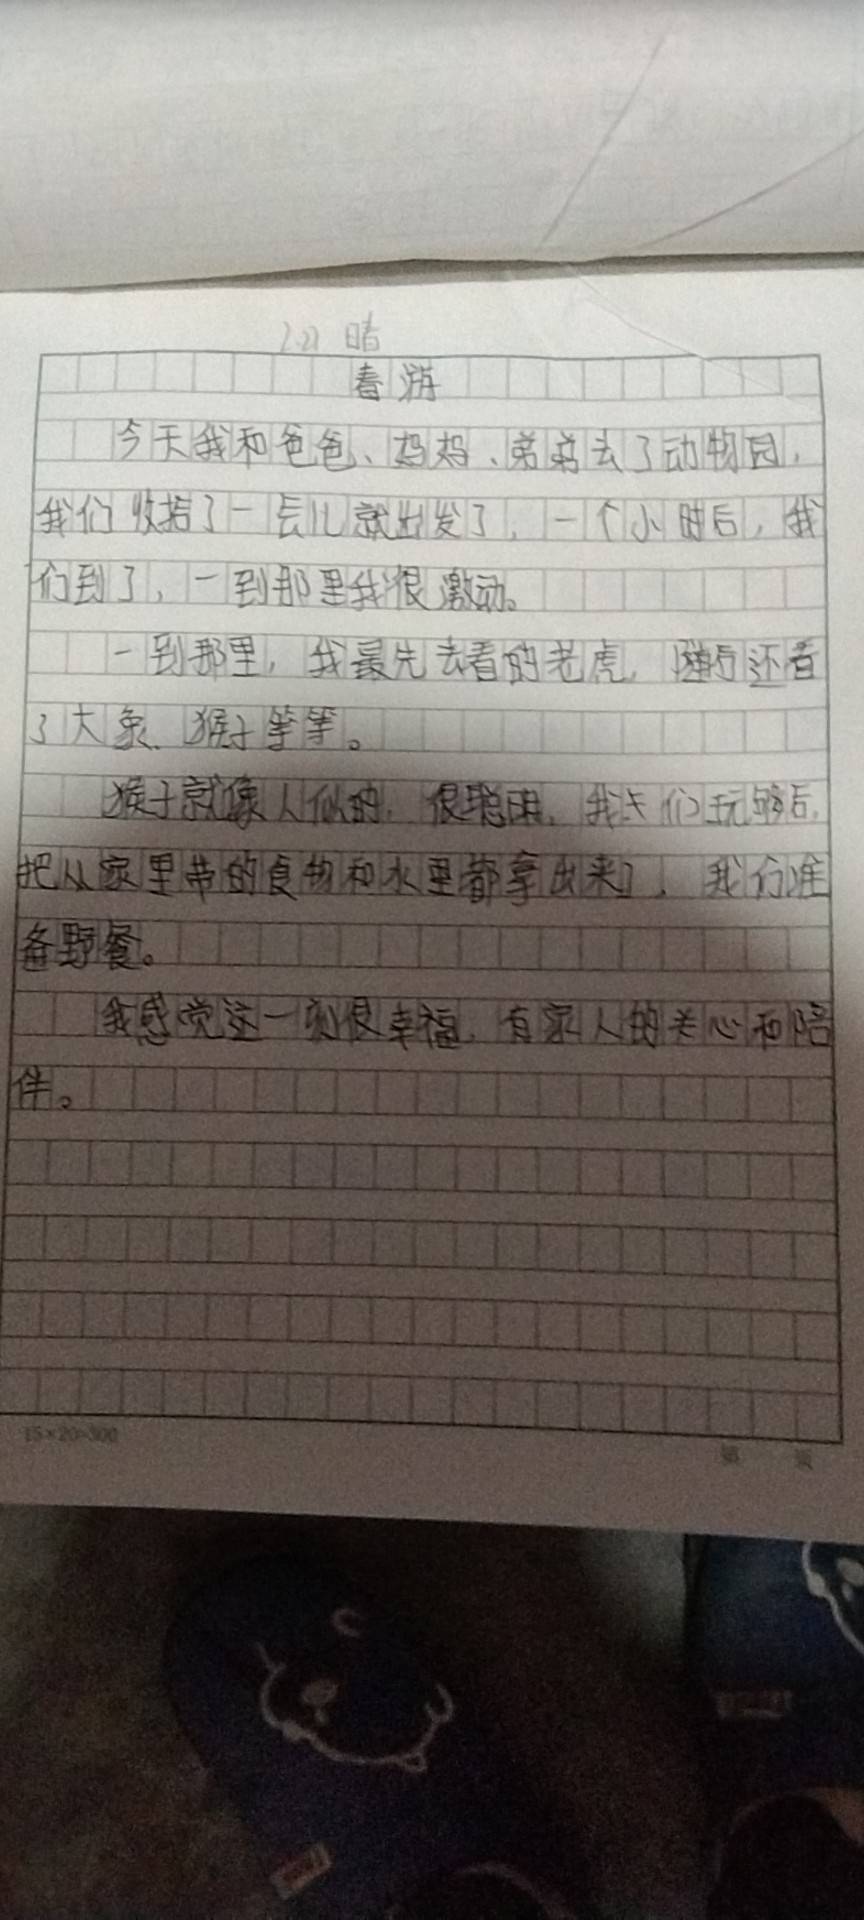 2.21 晴
春游
今天我和爸爸、妈妈、弟弟去了动物园,
我们收拾了一会儿就出发了,一个小时后,我
们到了,一到那里我很激动。
一到那里,我最先去看的老虎,随后还看
了大象、猴子等等。
猴子就像人似的,很聪明,我们玩够后,
把从家里带的食物和水里都拿出来了,我们准
备野餐。
我感觉这一刻很幸福,有家人的关心和陪
伴。
15×20=300
第 页